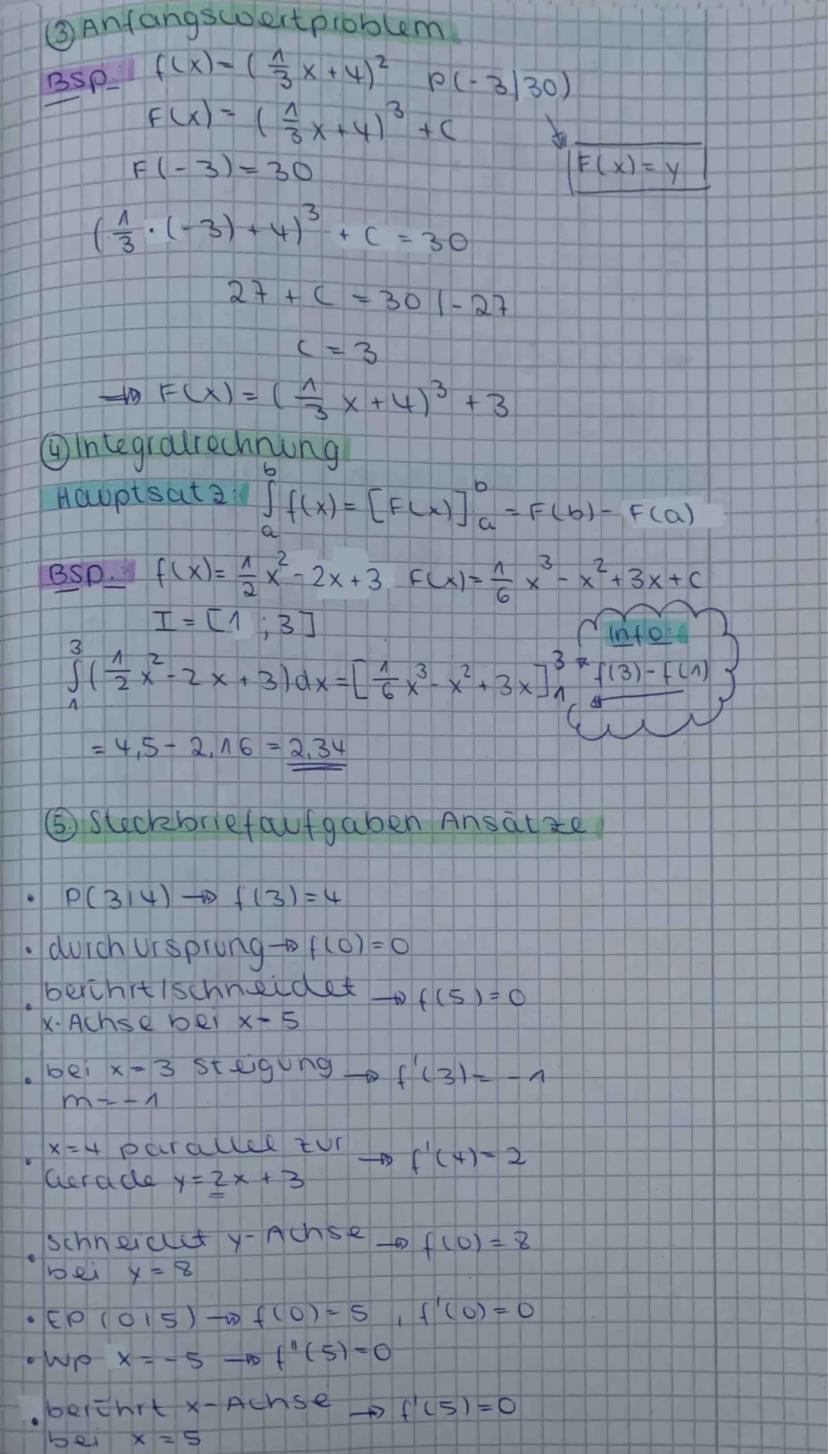 ③ Anfangswertproblem
BSP. f(x) = (1/3 x + 4)² P(-3|30)
F(x) = (1/3 x + 4)³ + C
F(x) = y
F(-3) = 30
(1/3 · (-3) + 4)³ + C = 30
27 + C = 30 | - 27
C = 3
→ F(x) = (1/3 x + 4)³ + 3
④ Integralrechnung
Hauptsatz: ∫ₐᵇ f(x) = [F(x)]ₐᵇ = F(b) - F(a)
BSP.: f(x) = 1/2 x² - 2x + 3 F(x) = 1/6 x³ - x² + 3x + C
I = [1 ; 3]
Info:
∫₁³ (1/2 x² - 2x + 3) dx = [1/6 x³ - x² + 3x]₁³ f(3) - f(1)
= 4,5 - 2,16 = 2,34
⑤ Steckbriefaufgaben Ansätze
• P(3|4) → f(3) = 4
• durch Ursprung → f(0) = 0
• berührt/schneidet → f(5) = 0
x-Achse bei x = 5
• bei x = 3 Steigung → f'(3) = -1
m = -1
• x = 4 parallel zur → f'(4) = 2
Gerade y = 2x + 3
• schneidet y-Achse → f(0) = 8
bei y = 8
• EP (0|5) → f(0) = 5 , f'(0) = 0
• WP x = -5 → f''(5) = 0
• berührt x-Achse → f'(5) = 0
bei x = 5